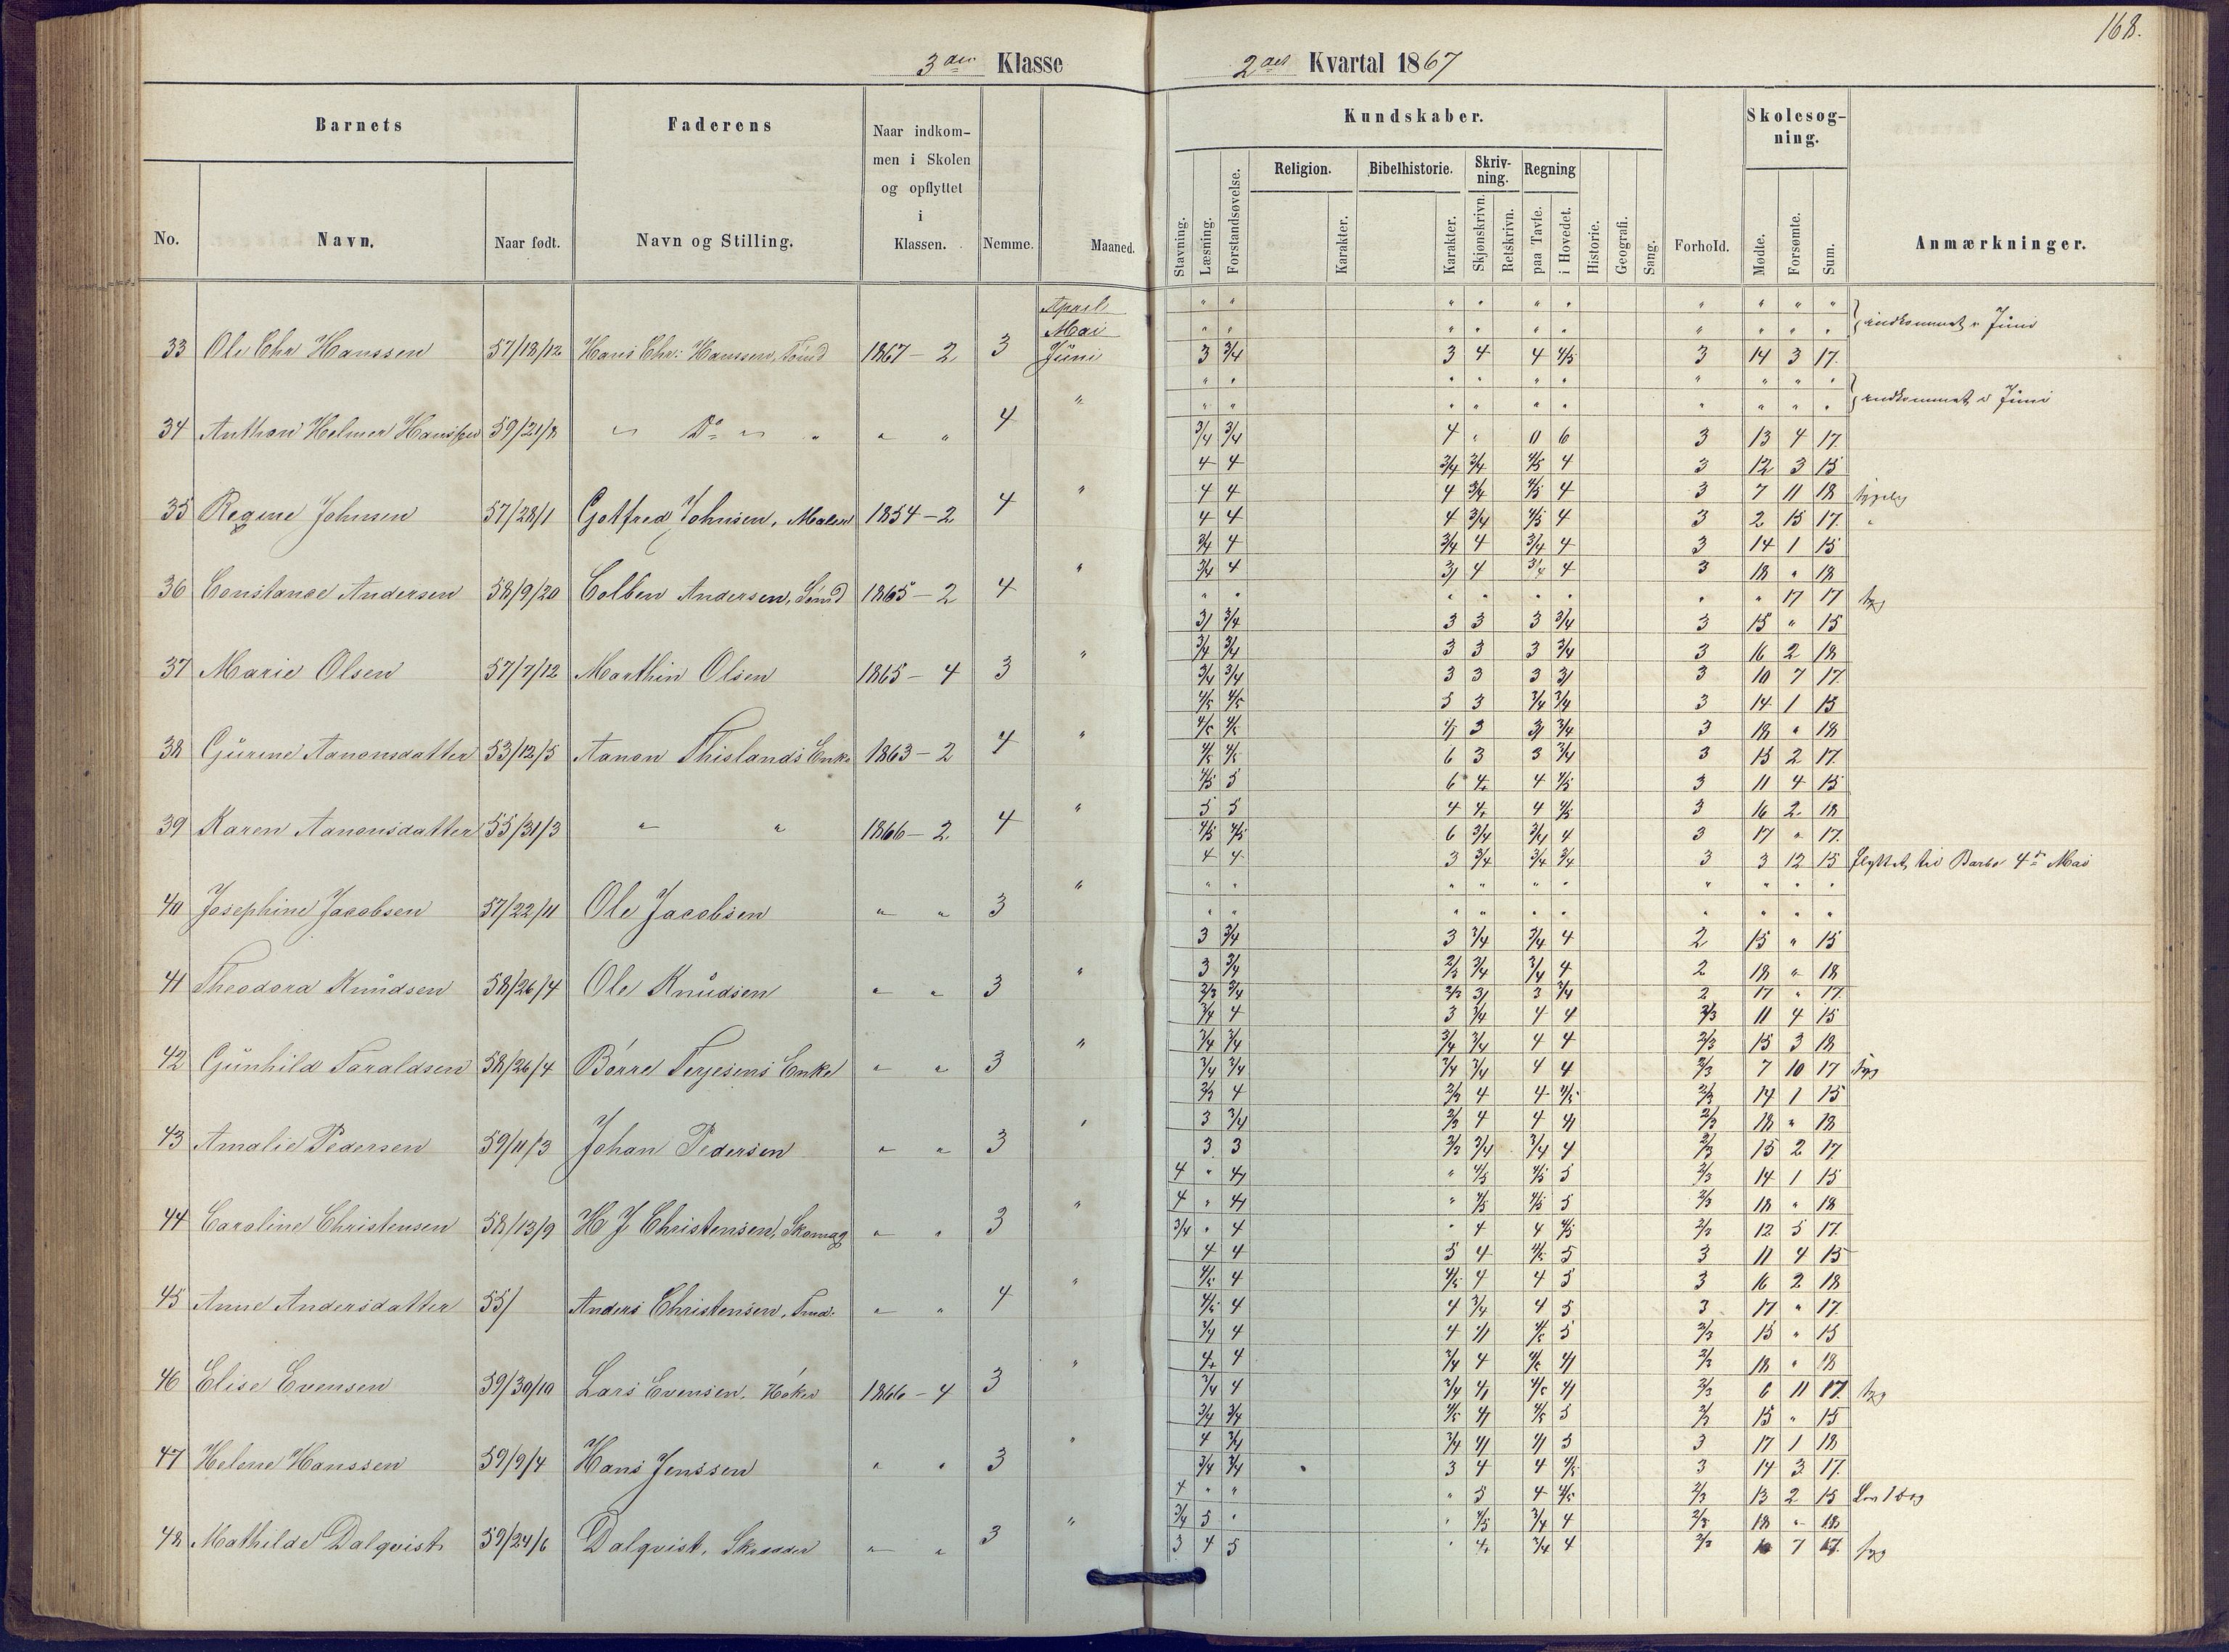 168.
3die Klasse 2det Kvartal 1867
Barnets Faderens Naar indkom-
men i Skolen
og opflyttet
i
Klassen. Nemme. Maaned. Kundskaber. Forhold. Skolesøg-
ning. Anmærkninger.
No. Navn. Naar født. Navn og Stilling.
Stavning. Læsning. Forstandsøvelse. Religion. Karakter. Bibelhistorie. Karakter. Skriv-
ning. Skjønskrivn. Retskrivn. Regning paa Tavle. i Hovedet. Historie. Geografi. Sang. Mødte. Forsømte. Sum.
April " " " " " " " " " " indkommet i Juni
Mai " " " " " " " " " "
33 Ole Chr Hanssen 57/18/12 Hans Chr: Hanssen, Tømd 1867 – 2 3 Juni 3 3/4 3 4 4 4/5 3 14 3 17.
" " " " " " " " " " indkommet i Juni
" " " " " " " " " "
34 Anthon Helmer Hanssen 59/21/8 " Do " " " " 4 " 3/4 3/4 4 " 0 6 3 13 4 17.
4 4 3/4 3/4 4/5 4 3 12 3 15
4 4 4 3/4 4/5 4 3 7 11 18
35 Regine Johnsen 57/28/1 Gotfred Johnsen, Maler 1854 – 2 4 " 4 4 4 3/4 4/5 4 3 2 15 17. "
3/4 4 3/4 4 3/4 4 3 14 1 15
3/4 4 3/ 4 3/4 4 3 18 " 18
36 Constance Andersen 58/9/20 Colben Andersen, Tømd 1865 – 2 4 " " " " " " " " " 17 17 syg
3/ 3/4 3 3 3 3/4 3 15 " 15
3/4 3/4 3 3 3 3/4 3 16 2 18
37 Marie Olsen 57/7/12 Marthin Olsen 1865 – 4 3 " 3/4 3/4 3 3 3 3/ 3 10 7 17.
4/5 4/5 5 3 3/4 3/4 3 14 1 15
4/5 4/5 4/5 3 3/ 3/4 3 18 " 18
38 Gurine Aanonsdatter 53/12/5 Aanon Thislands Enke 1863 – 2 4 " 4/5 4/5 6 3 3 3/4 3 15 2 17.
4/5 5 6 4+ 4 4/5 3 11 4 15
5 5 4 4+ 4 4/5 3 16 2 18
39 Karen Aanonsdatter 55/31/3 " " 1866 – 2 4 " 4/5 4/5 6 3/4 3/4 4 3 17 " 17.
4 4 3 3/4 3/4 3/4 3 3 12 15 flyttet til Barbo 4de Mai
" " " " " " " " " "
40 Josephine Jacobsen 57/22/11 Ole Jacobsen " " 3 " " " " " " " " " " "
3 3/4 3 3/4 3/4 4 2 15 " 15
3 3/4 2/3 3/4 3/4 4 2 18 " 18
41 Theodora Knudsen 58/26/4 Ole Knudsen " " 3 " 2/3 3/4 2/3 3/ 3 3/4 2 17 " 17.
3/4 4 3 3/4 4 4 2/3 11 4 15
3/4 3/4 3/4 3/4 4 4 2/3 15 3 18
42 Gunhild Taraldsen 58/26/4 Børre Terjesens Enke " " 3 " 3/4 3/4 3/4 3/4 4 4 2/3 7 10 17 syg
2/3 4 2/3 4 4 4/5 2/3 14 1 15
3 3/4 2/3 4 4 4/ 2/3 18 " 18
43 Amalie Pedersen 59/11/3 Johan Pedersen " " 3 " 3 3 2/3 3/4 3/4 4 2/3 15 2 17
4 " 4/ " 4/5 4/5 5 2/3 14 1 15
4 " 4/ " 4/5 4/5 5 2/3 18 " 18
44 Caroline Christensen 58/13/9 H J Christensen, Skomag " " 3 " 3/4 " 4 " 4 4 4/5 2/3 12 5 17.
4 4 5 4 4/5 5 3 11 4 15
4/5 4 4/5 4 4 5 3 16 2 18
45 Anne Andersdatter 55/ Anders Christensen, Tmd: " " 4 " 4/5 4 4 3/4 4 5 3 17 " 17.
3/4 4 4 4/ 4/5 5 2/3 15 " 15
4+ 4 3/4 4 4/5 4/ 2/3 18 " 18
46 Elise Evensen 59/30/10 Lars Evensen, Høker 1866 – 4 3 " 3/4 4 3/4 4/ 4/5 4/ 2/3 6 11 17. syg
3/4 3/4 4/5 4/ 4/5 5 2/3 15 " 15
4 3/4 3/4 4/ 4/ 5 3 17 1 18
47 Helene Hanssen 59/9/4 Hans Jenssen " " 3 " 3/4 3/4 3 4 4 4/5 3 14 3 17.
4 " " " 5 4 4/5 2/3 13 2 15
3/4 5 " " 4/5 3/4 4 2/3 18 " 18
48 Mathilde Dalqvist 59/24/6 Dalqvist, Skrædder " " 3 " 3 4 5 " 4+ 3/4 4 2/3 10 7 17. syg